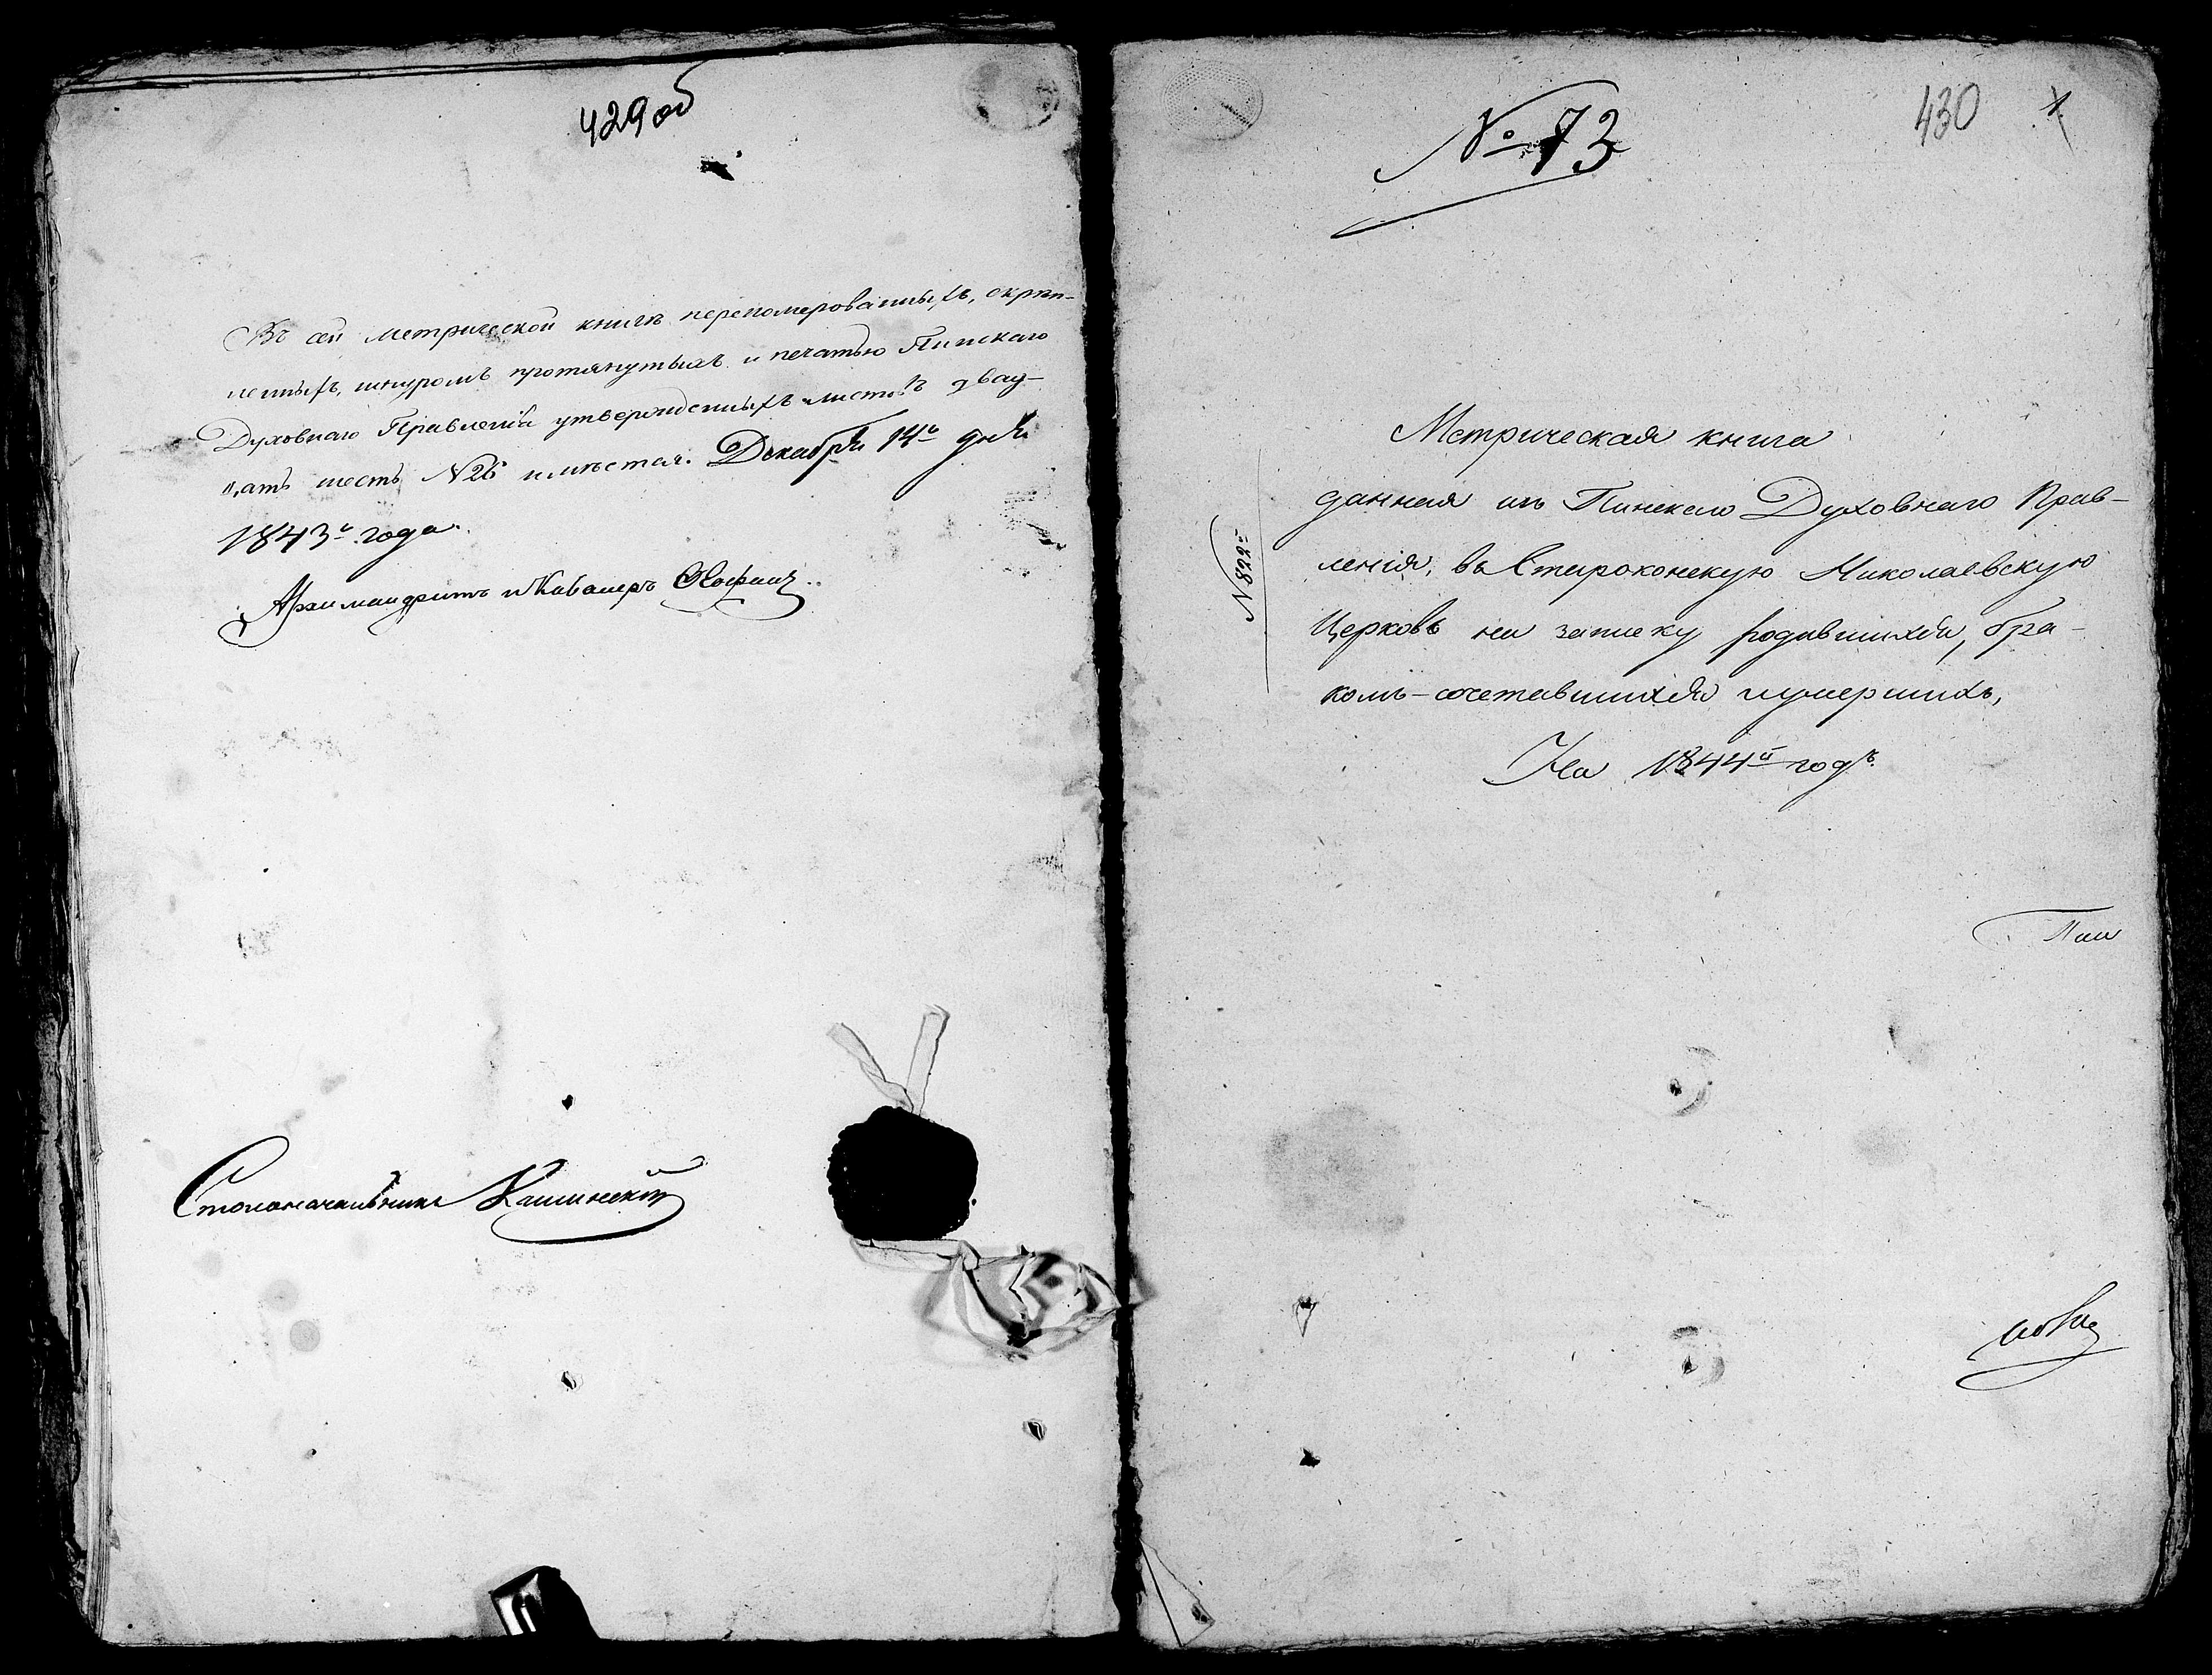 429 об
Въ сей метрической книгѣ переномерованныхъ, скрѣп-
ленныхъ, шнуромъ протянутыхъ и печатью Пинскаго
Духовнаго Правленія утвержденныхъ листовъ двад-
цать шесть N 26 имѣется. Декабря 14го дня
1843го года.
Архимандритъ и Кавалеръ
Столоначальникъ
№ 73
430
1
N 822й
Метрическая книга
данная изъ Пинскаго Духовнаго Прав-
ленія, въ Староконскую Николаевскую
Церковь на записку родившихся, бра-
комъ-сочетавшихся и умершихъ,
На 1844й годъ.
Пин